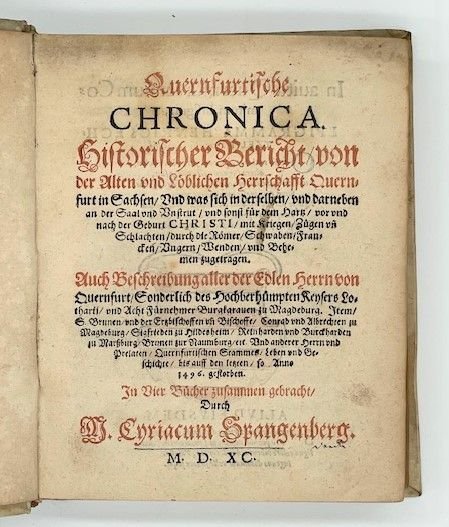 Quernfurtische
CHRONICA.
Historischer Bericht/ von
der Alten vnd Löblichen Herrschafft Quern-
furt in Sachsen/ Vnd was sich in derselben/ vnd darneben
an der Saal vnd Vnstrut/ vnd sonst für dem Hartz/ vor vnd
nach der Geburt CHRISTI/ mit Kriegen/ Zügen vñ
Schlachten/ durch die Römer/ Schwaben/ Fran-
cken/ Vngern/ Wenden/ vnd Behe-
men zugetragen.
Auch Beschreibung aller der Edlen Herrn von
Quernfurt/ Sonderlich des Hochberhümpten Keysers Lo-
tharij/ vnd Acht Fürnehmer Burggrauen zu Magdeburg. Item/
S. Brunen/ vnd der Ertzbischoffen vñ Bischoffe/ Conrad vnd Albrechten zu
Magdeburg/ Siafrieden zu Hildesheim/ Reinharden vnd Burckharden
zu Marßburg/ Brunen zur Naumburg/ etc. Vnd anderer Herrn vnd
Prelaten/ Quernfurtischen Stammes/ Leben vnd Ge-
schichte/ biß auff den letzten/ so Anno
1496. gestorben.
In Vier Bücher zusammen gebracht/
Durch
M. Cyriacum Spangenberg.
M. D. XC.